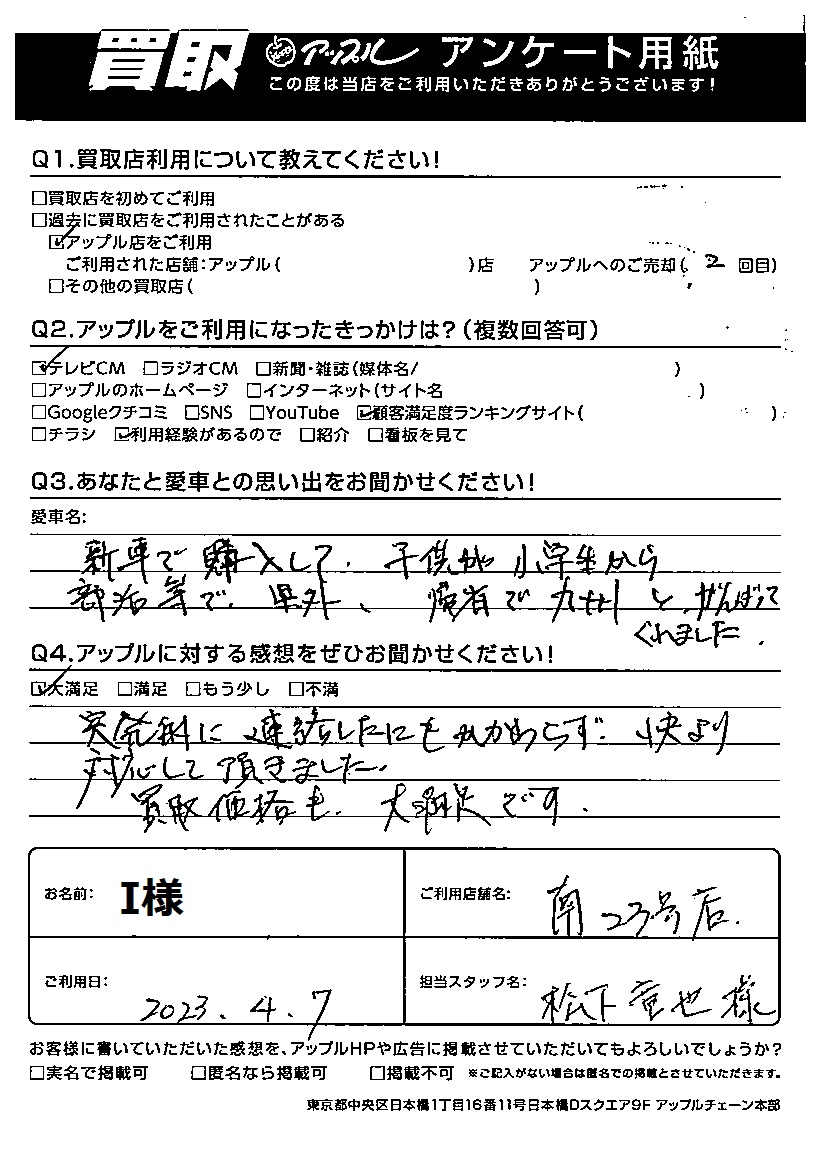 買取 アップル アンケート用紙
この度は当店をご利用いただきありがとうございます!
Q1.買取店利用について教えてください!
□買取店を初めてご利用
□過去に買取店をご利用されたことがある
☑アップル店をご利用
ご利用された店舗:アップル( )店 アップルへのご売却( 2 回目)
□その他の買取店( )
Q2.アップルをご利用になったきっかけは?(複数回答可)
☑テレビCM □ラジオCM □新聞・雑誌(媒体名/ )
□アップルのホームページ □インターネット(サイト名 )
□Googleクチコミ □SNS □YouTube ☑顧客満足度ランキングサイト( )
□チラシ ☑利用経験があるので □紹介 □看板を見て
Q3.あなたと愛車との思い出をお聞かせください!
愛車名:
新車で購入して、子供が小学生から
部活等で、県外、帰省で九州と、がんばって
くれました.
Q4.アップルに対する感想をぜひお聞かせください!
☑大満足 □満足 □もう少し □不満
に連絡したにもかかわらず、快より
対応して頂きました.
買取価格も、大満足です.
お名前: I様
ご利用店舗名: 南23号店.
ご利用日: 2023.4.7
担当スタッフ名: 松下竜也様
お客様に書いていただいた感想を、アップルHPや広告に掲載させていただいてもよろしいでしょうか?
□実名で掲載可 □匿名なら掲載可 □掲載不可 ※ご記入がない場合は匿名での掲載とさせていただきます。
東京都中央区日本橋1丁目16番11号日本橋Dスクエア9F アップルチェーン本部